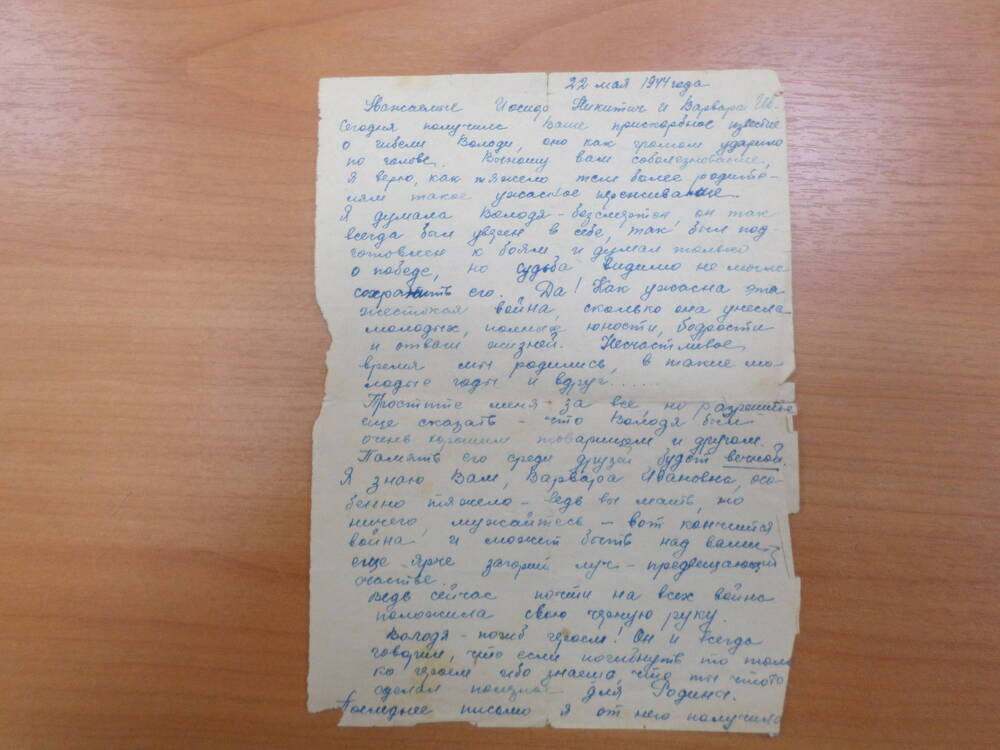 22 мая 1944 года
Уважаемые Иосиф Никитич и Варвара Ив.
Сегодня получила Ваше прискорбное известие
о гибели Володи, оно как громом ударило
по голове. Выношу вам соболезнование,
я верю, как тяжело тем более родите-
лям такое ужасное переживание.
Я думала Володя - безсмертен, он так
всегда был уверен в себе, так был под-
готовлен к боям и думал только
о победе, но судьба видимо не могла
сохранить его. Да! Как ужасна эта
жестокая война, сколько она унесла
молодых, полных юности, бодрости
и отваги жизней. Несчастливое
время мы родились, в такие мо-
лодые годы и вдруг......
Простите меня за все, но разрешите
еще сказать - что Володя был
очень хорошим товарищем и другом.
Память его среди друзей будет вечной.
Я знаю Вам, Варвара Ивановна, осо-
бенно тяжело - ведь вы мать, но
ничего, мужайтесь - вот кончится
война и может быть над вами
еще ярче загорит луч - предвещающий
счастье.
Ведь сейчас почти на всех война
положила свою черную руку.
Володя - погиб героем! Он и всегда
говорил, что если погибнуть то толь
ко героем ибо знаешь, что ты что то
сделал полезное для Родины.
Последнее письмо я от него получила